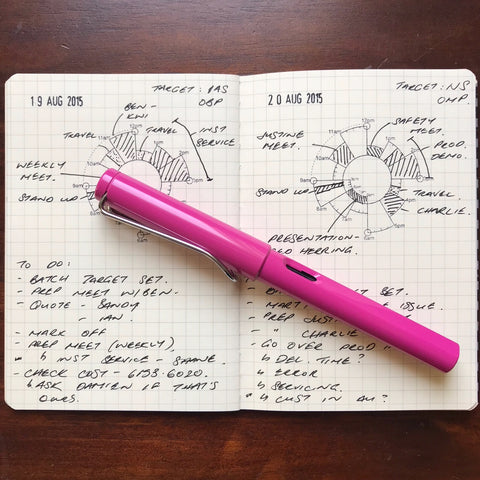 19 AUG 2015
TARGET: BAS
OBP
BEN-
KWI
TRAVEL
TRAVEL
INST
SERVICE
WEEKLY
MEET.
STAND UP
11am
12pm
1pm
10am
9am
TO DO:
- BATCH TARGET SET.
- PREP MEET W/BEN.
- QUOTE - SANDY
- IAN
- MARK OFF
- PREP MEET (WEEKLY)
" ↳ INST SERVICE - SHANE
- CHECK COST - 6153-6020.
↳ ASK DAMIEN IF THAT'S
OURS.
20 AUG 2015
TARGET: NS
OMP
JUSTINE
MEET.
SAFETY
MEET.
PROD.
DEMO.
STAND UP
TRAVEL
CHARLIE.
PRESENTATION-
HERRING
11am
12pm
1pm
10am
2pm
9am
8am
4pm
5pm
SET.
- MART ISSUE
- PREP JUST
- " CHARLIE
- GO OVER PROD "
↳ DEL. TIME?
↳ ERROR
↳ SERVICING.
" ↳ CUST IN AU?